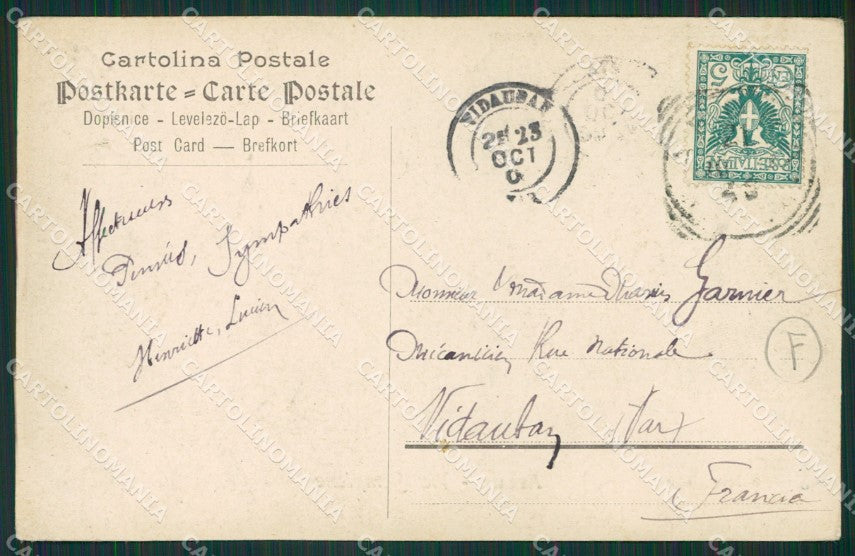 Cartolina Postale
Postkarte = Carte Postale
Dopisnice - Levelezö-Lap - Briefkaart
Post Card — Brefkort
Affectueuses
Pensées, Sympathies
Henriette, Lucien
VIDAUBAN
25
OCT
5
POSTE ITALIANE
Monsieur Madame Garnier
Mécanicien Rue Nationale
Vidauban (Var)
Francia
F
CARTOLINOMANIA